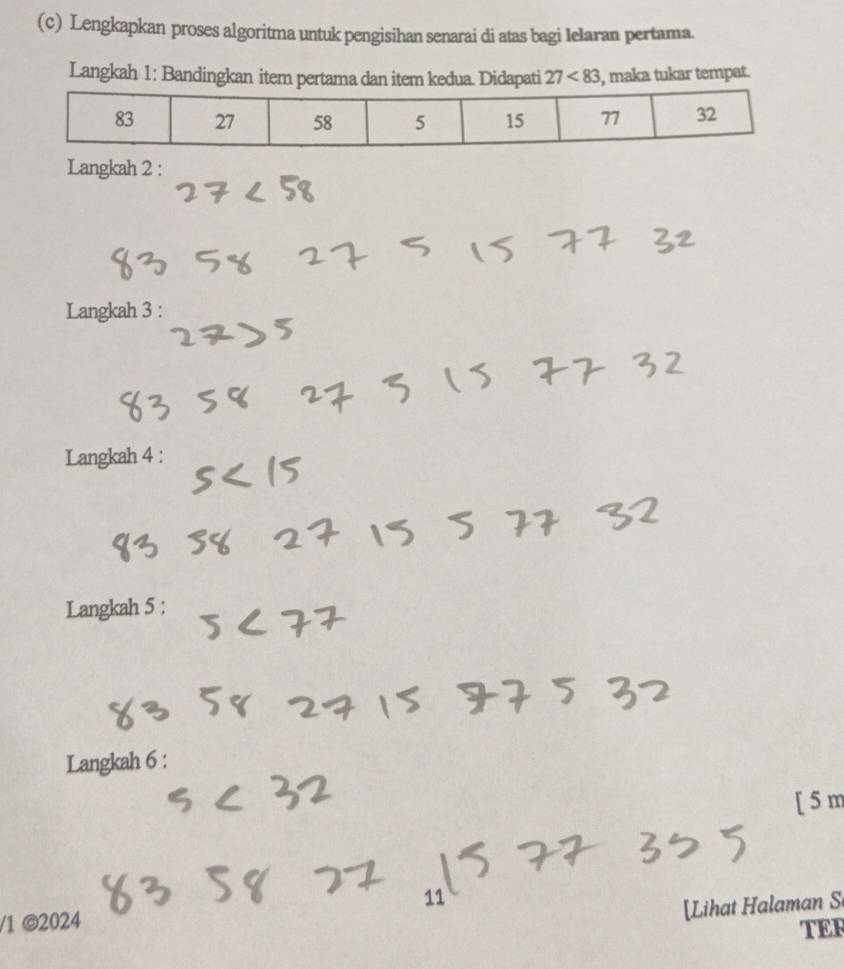 (c) Lengkapkan proses algoritma untuk pengisihan senarai di atas bagi lelaran pertama.
Langkah 1: Bandingkan item pertama dan item kedua. Didapati 27 < 83, maka tukar tempat.
83 27 58 5 15 77 32
Langkah 2 :
27 < 58
83 58 27 5 15 77 32
Langkah 3 :
27 > 5
83 58 27 5 15 77 32
Langkah 4 :
5 < 15
83 58 27 15 5 77 32
Langkah 5 :
5 < 77
83 58 27 15 77 5 32
Langkah 6 :
5 < 32
[ 5 m
83 58 27 15 77 32 5
11
[Lihat Halaman S
/1 ©2024
TER